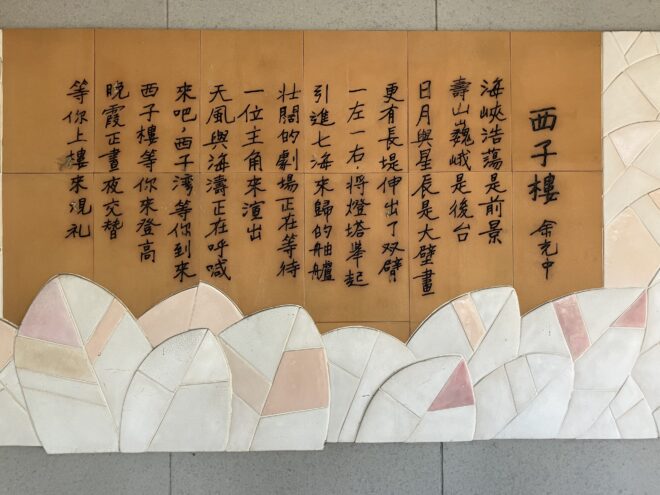 西子樓 余光中
海峽浩蕩是前景
壽山巍峨是後台
日月與星辰是大壁畫
更有長堤伸出了双臂
一左一右將燈塔舉起
引進七海來歸的舳艫
壯闊的劇場正在等待
一位主角來演出
天風與海濤正在呼喊
來吧，西子灣等你到來
西子樓等你來登高
晚霞正晝夜交替
等你上樓來觀礼